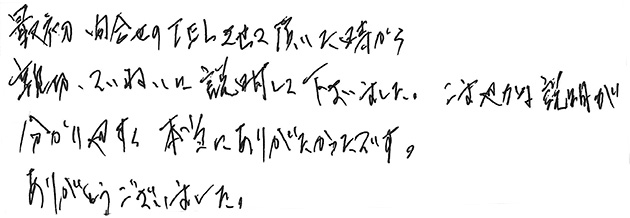 最初、問合せのTELさせて頂いた時から
親切、ていねいに説明して下さいました。こまやかな説明が
分かりやすく本当にありがたかったです。
ありがとうございました。